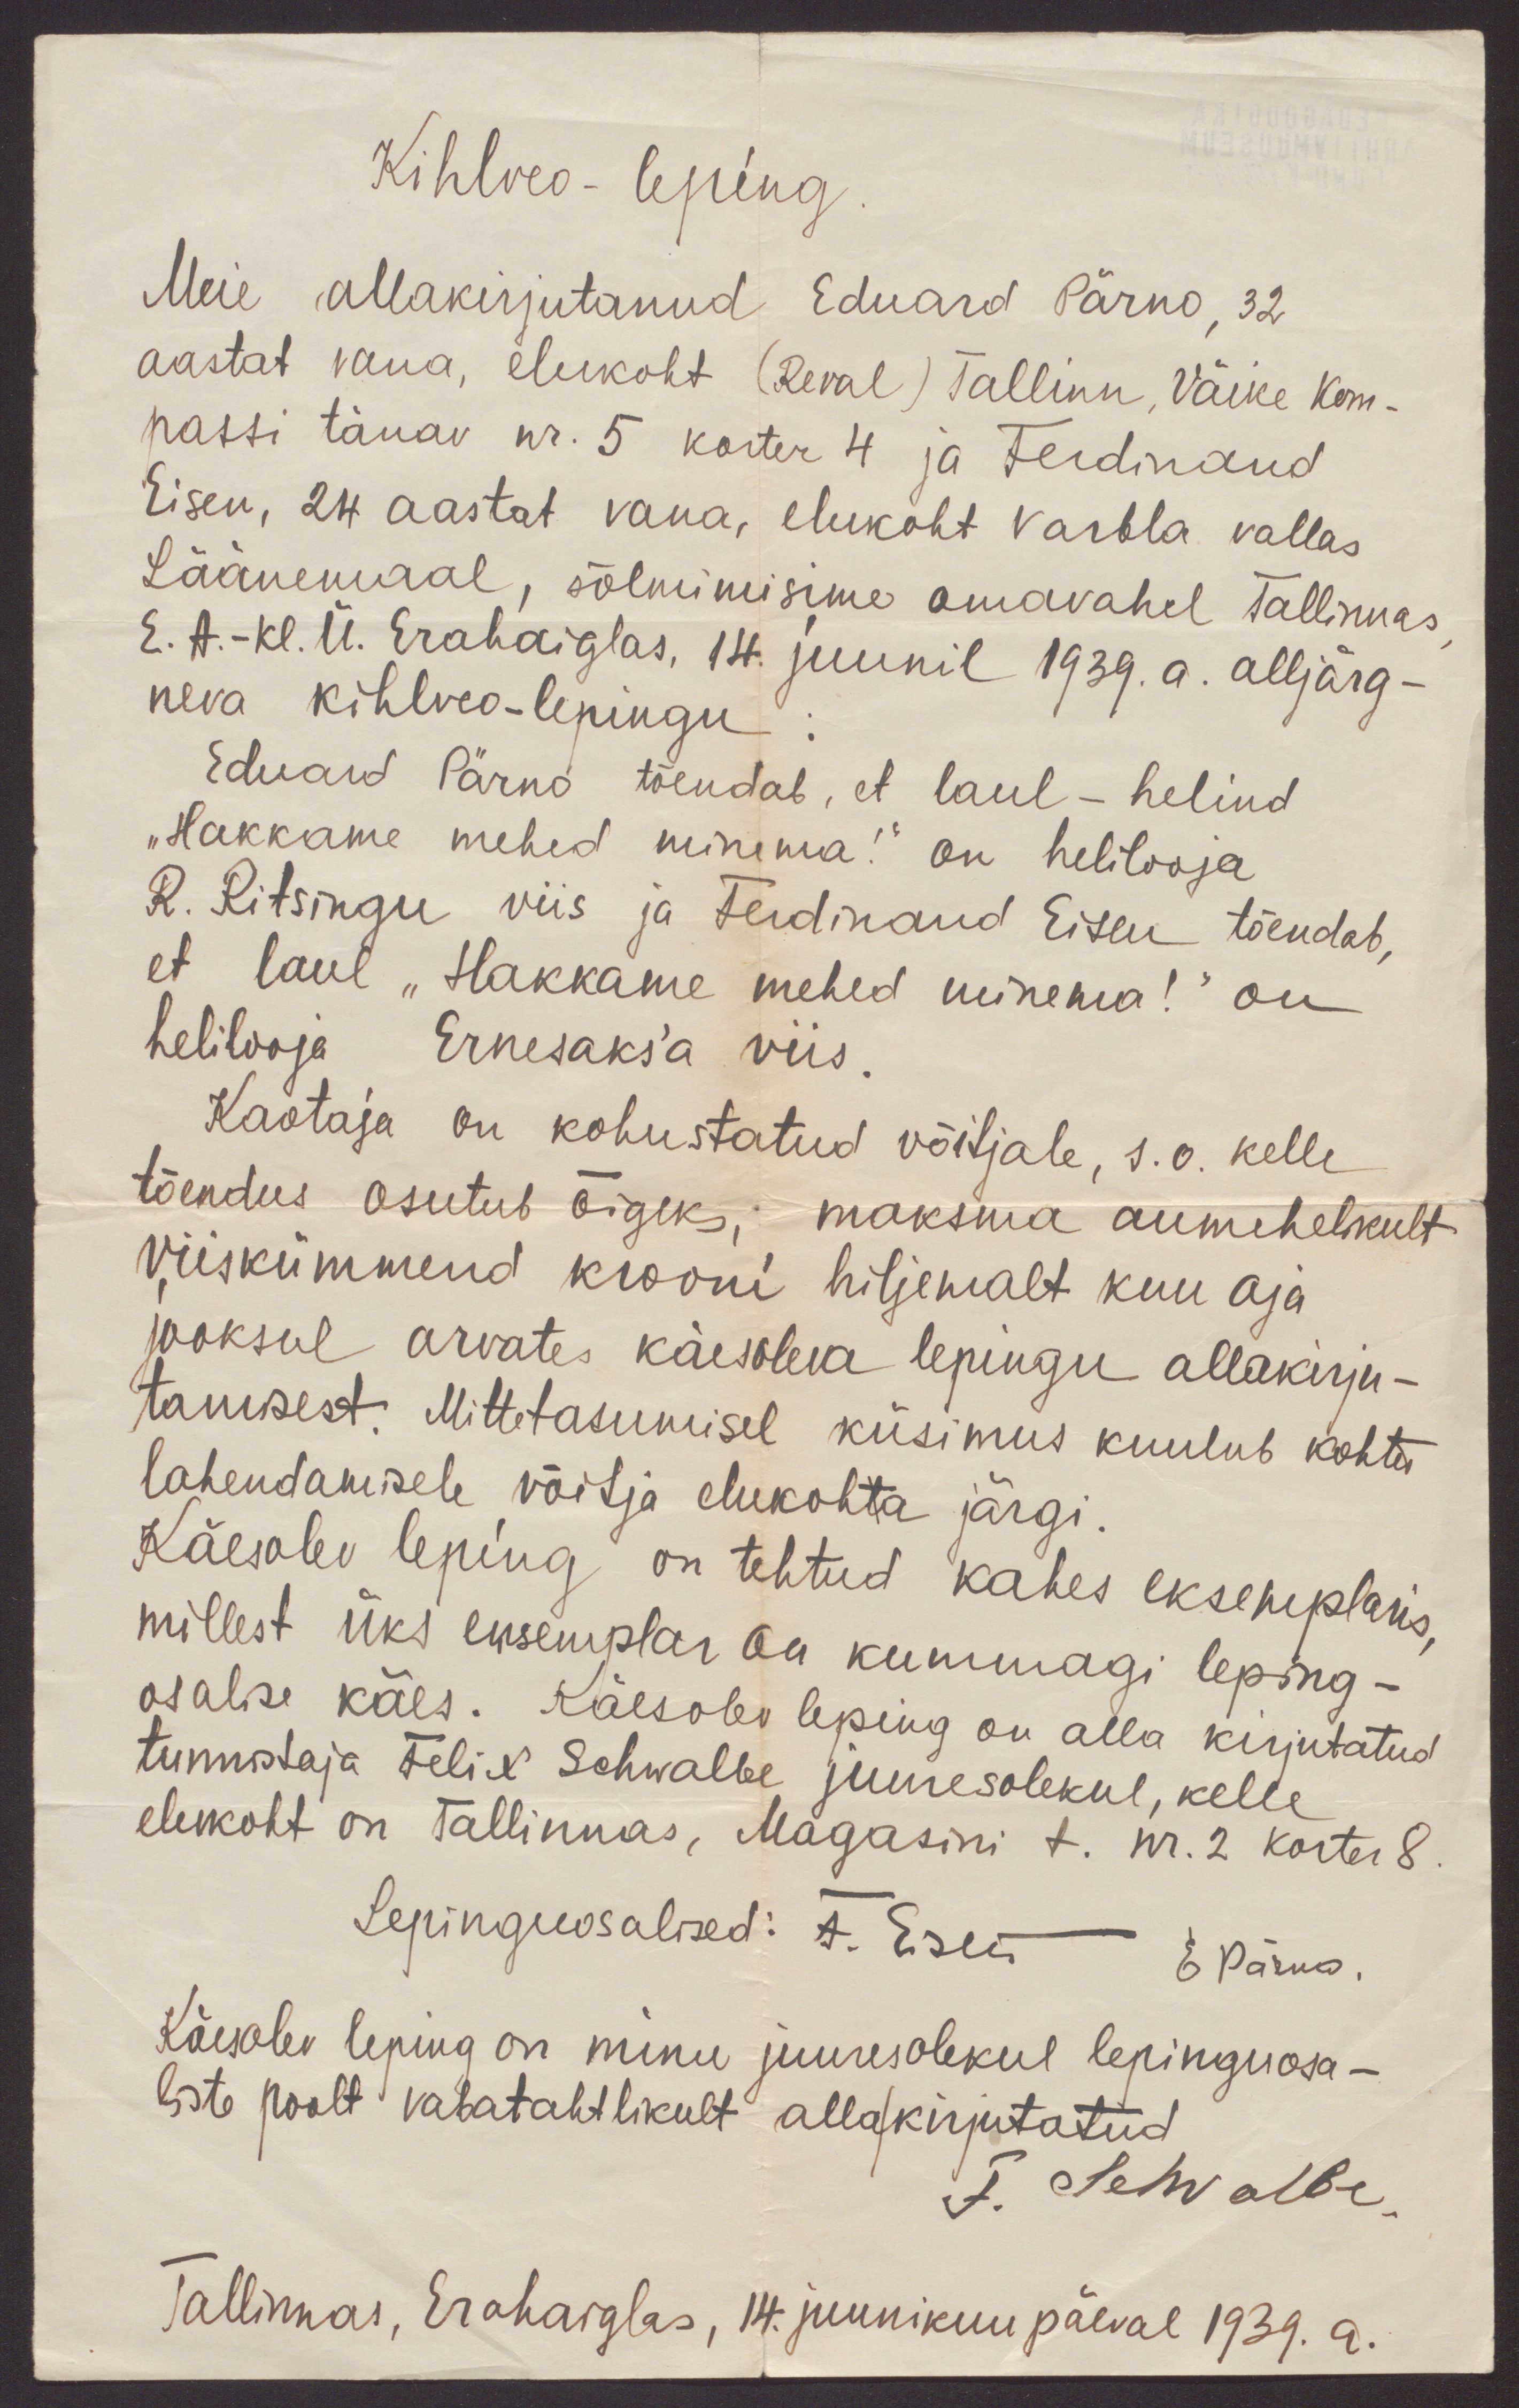 Kihlveo-leping.
Meie allakirjutanud Eduard Pärno, 32
aastat vana, elukoht (Reval) Tallinn, Väike Kom-
passi tänav nr. 5 korter 4 ja Ferdinand
Eisen, 24 aastat vana, elukoht Varbla vallas
Läänemaal, sõlmimisime omavahel Tallinnas,
E. A.-Kl. Ü. Erahaiglas, 14. juunil 1939. a. alljärg-
neva kihlveo-lepingu :
Eduard Pärno tõendab, et laul - helind
„Hakkame mehed minema!“ on helilooja
R. Ritsingu viis ja Ferdinand Eisen tõendab,
et laul „Hakkame mehed minema!" on
helilooja Ernesaks'a viis.
Kaotaja on kohustatud võitjale, s.o. kelle
tõendus osutub õigeks, maksma aumehelikult
viiskümmend krooni hiljemalt kuu aja
jooksul arvates käesoleva lepingu allakirju-
tamisest. Mittetasumisel küsimus kuulub kohtu
lahendamisele võitja elukohta järgi.
Käesolev leping on tehtud kahes eksemplaris,
millest üks eksemplar on kummagi leping-
osalise käes. Käesolev leping on alla kirjutatud
tunnistaja Felix Schwalbe juuresolekul, kelle
elukoht on Tallinnas, Magasini t. nr. 2 korter 8.
Lepinguosalised: F. Eisen E Pärno.
Käesolev leping on minu juuresolekul lepinguosa-
liste poolt vabatahtlikult alla/kirjutatud
F. Schwalbe.
Tallinnas, Erahaiglas, 14. juunikuu päeval 1939. a.